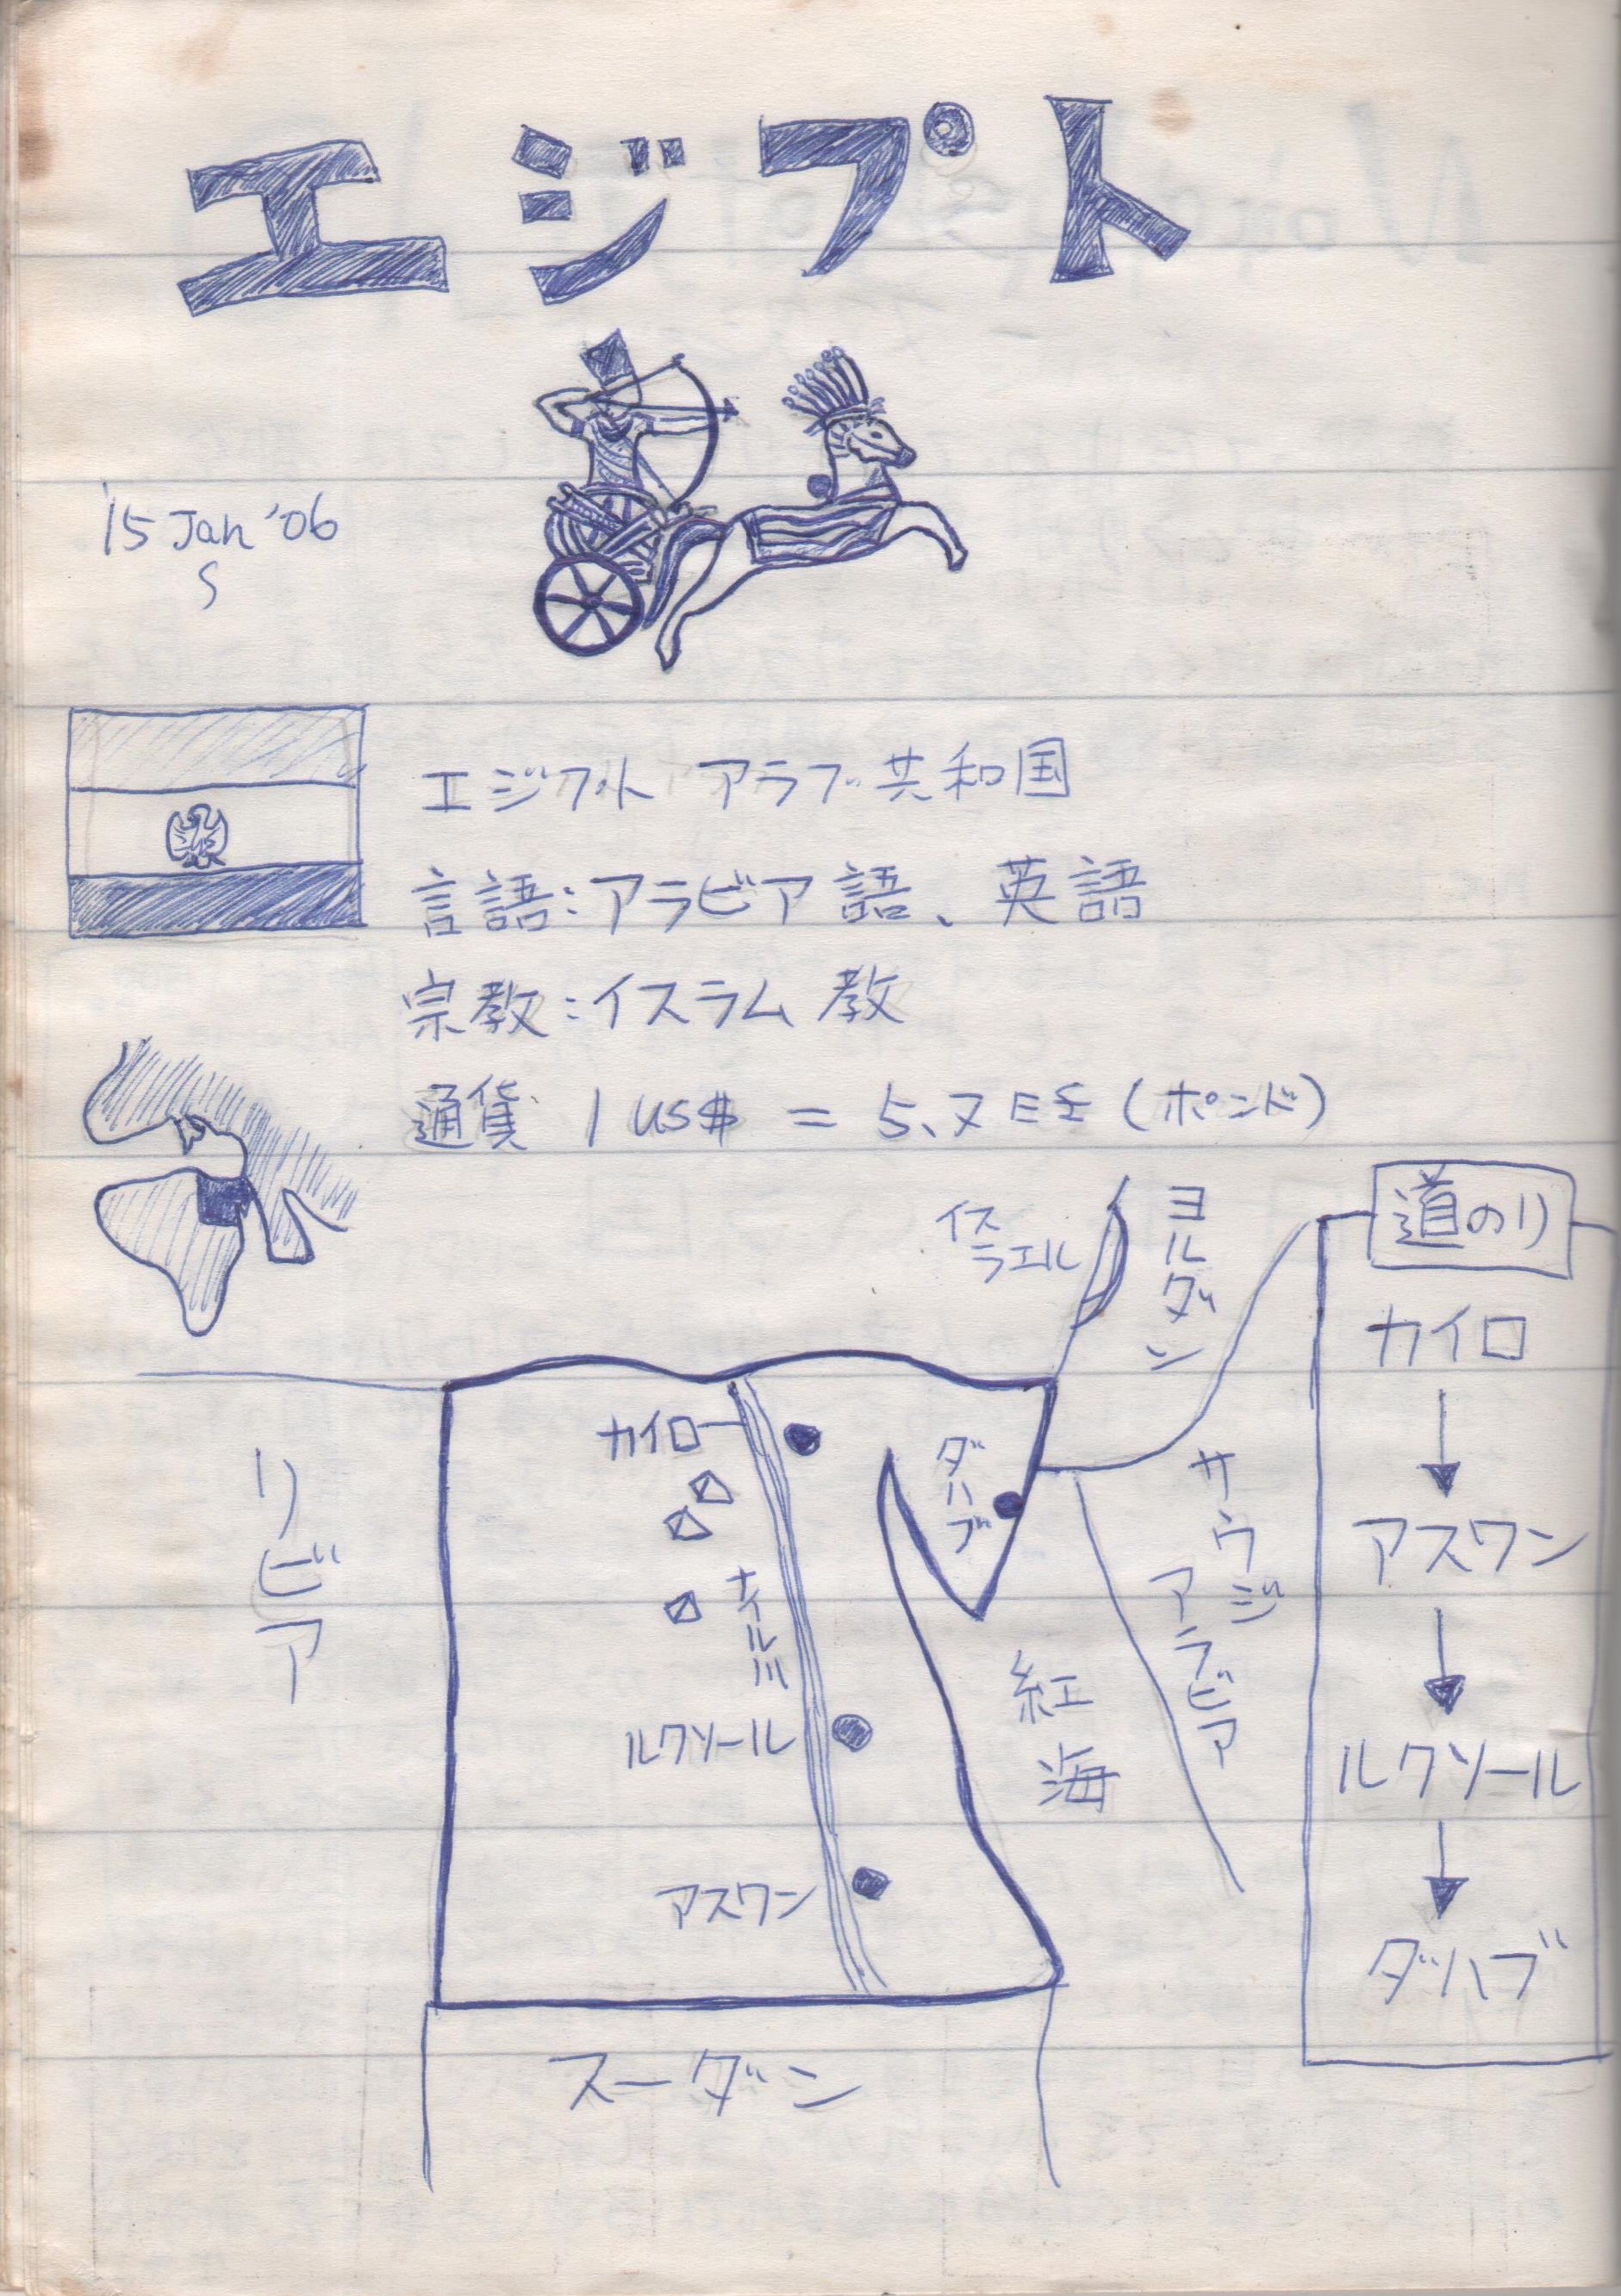 エジプト
'15 Jan '06
S
エジプト アラブ共和国
言語:アラビア語、英語
宗教:イスラム教
通貨 1 US$ = 5.7E£(ポンド)
道のり
カイロ
アスワン
ルクソール
ダハブ
イスラエル
ヨルダン
カイロ
ダハブ
サウジアラビア
リビア
ナイル川
紅海
ルクソール
アスワン
スーダン